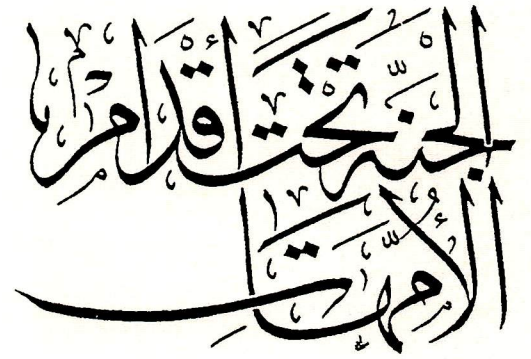 الجنة تحت أقدام
الأمهات